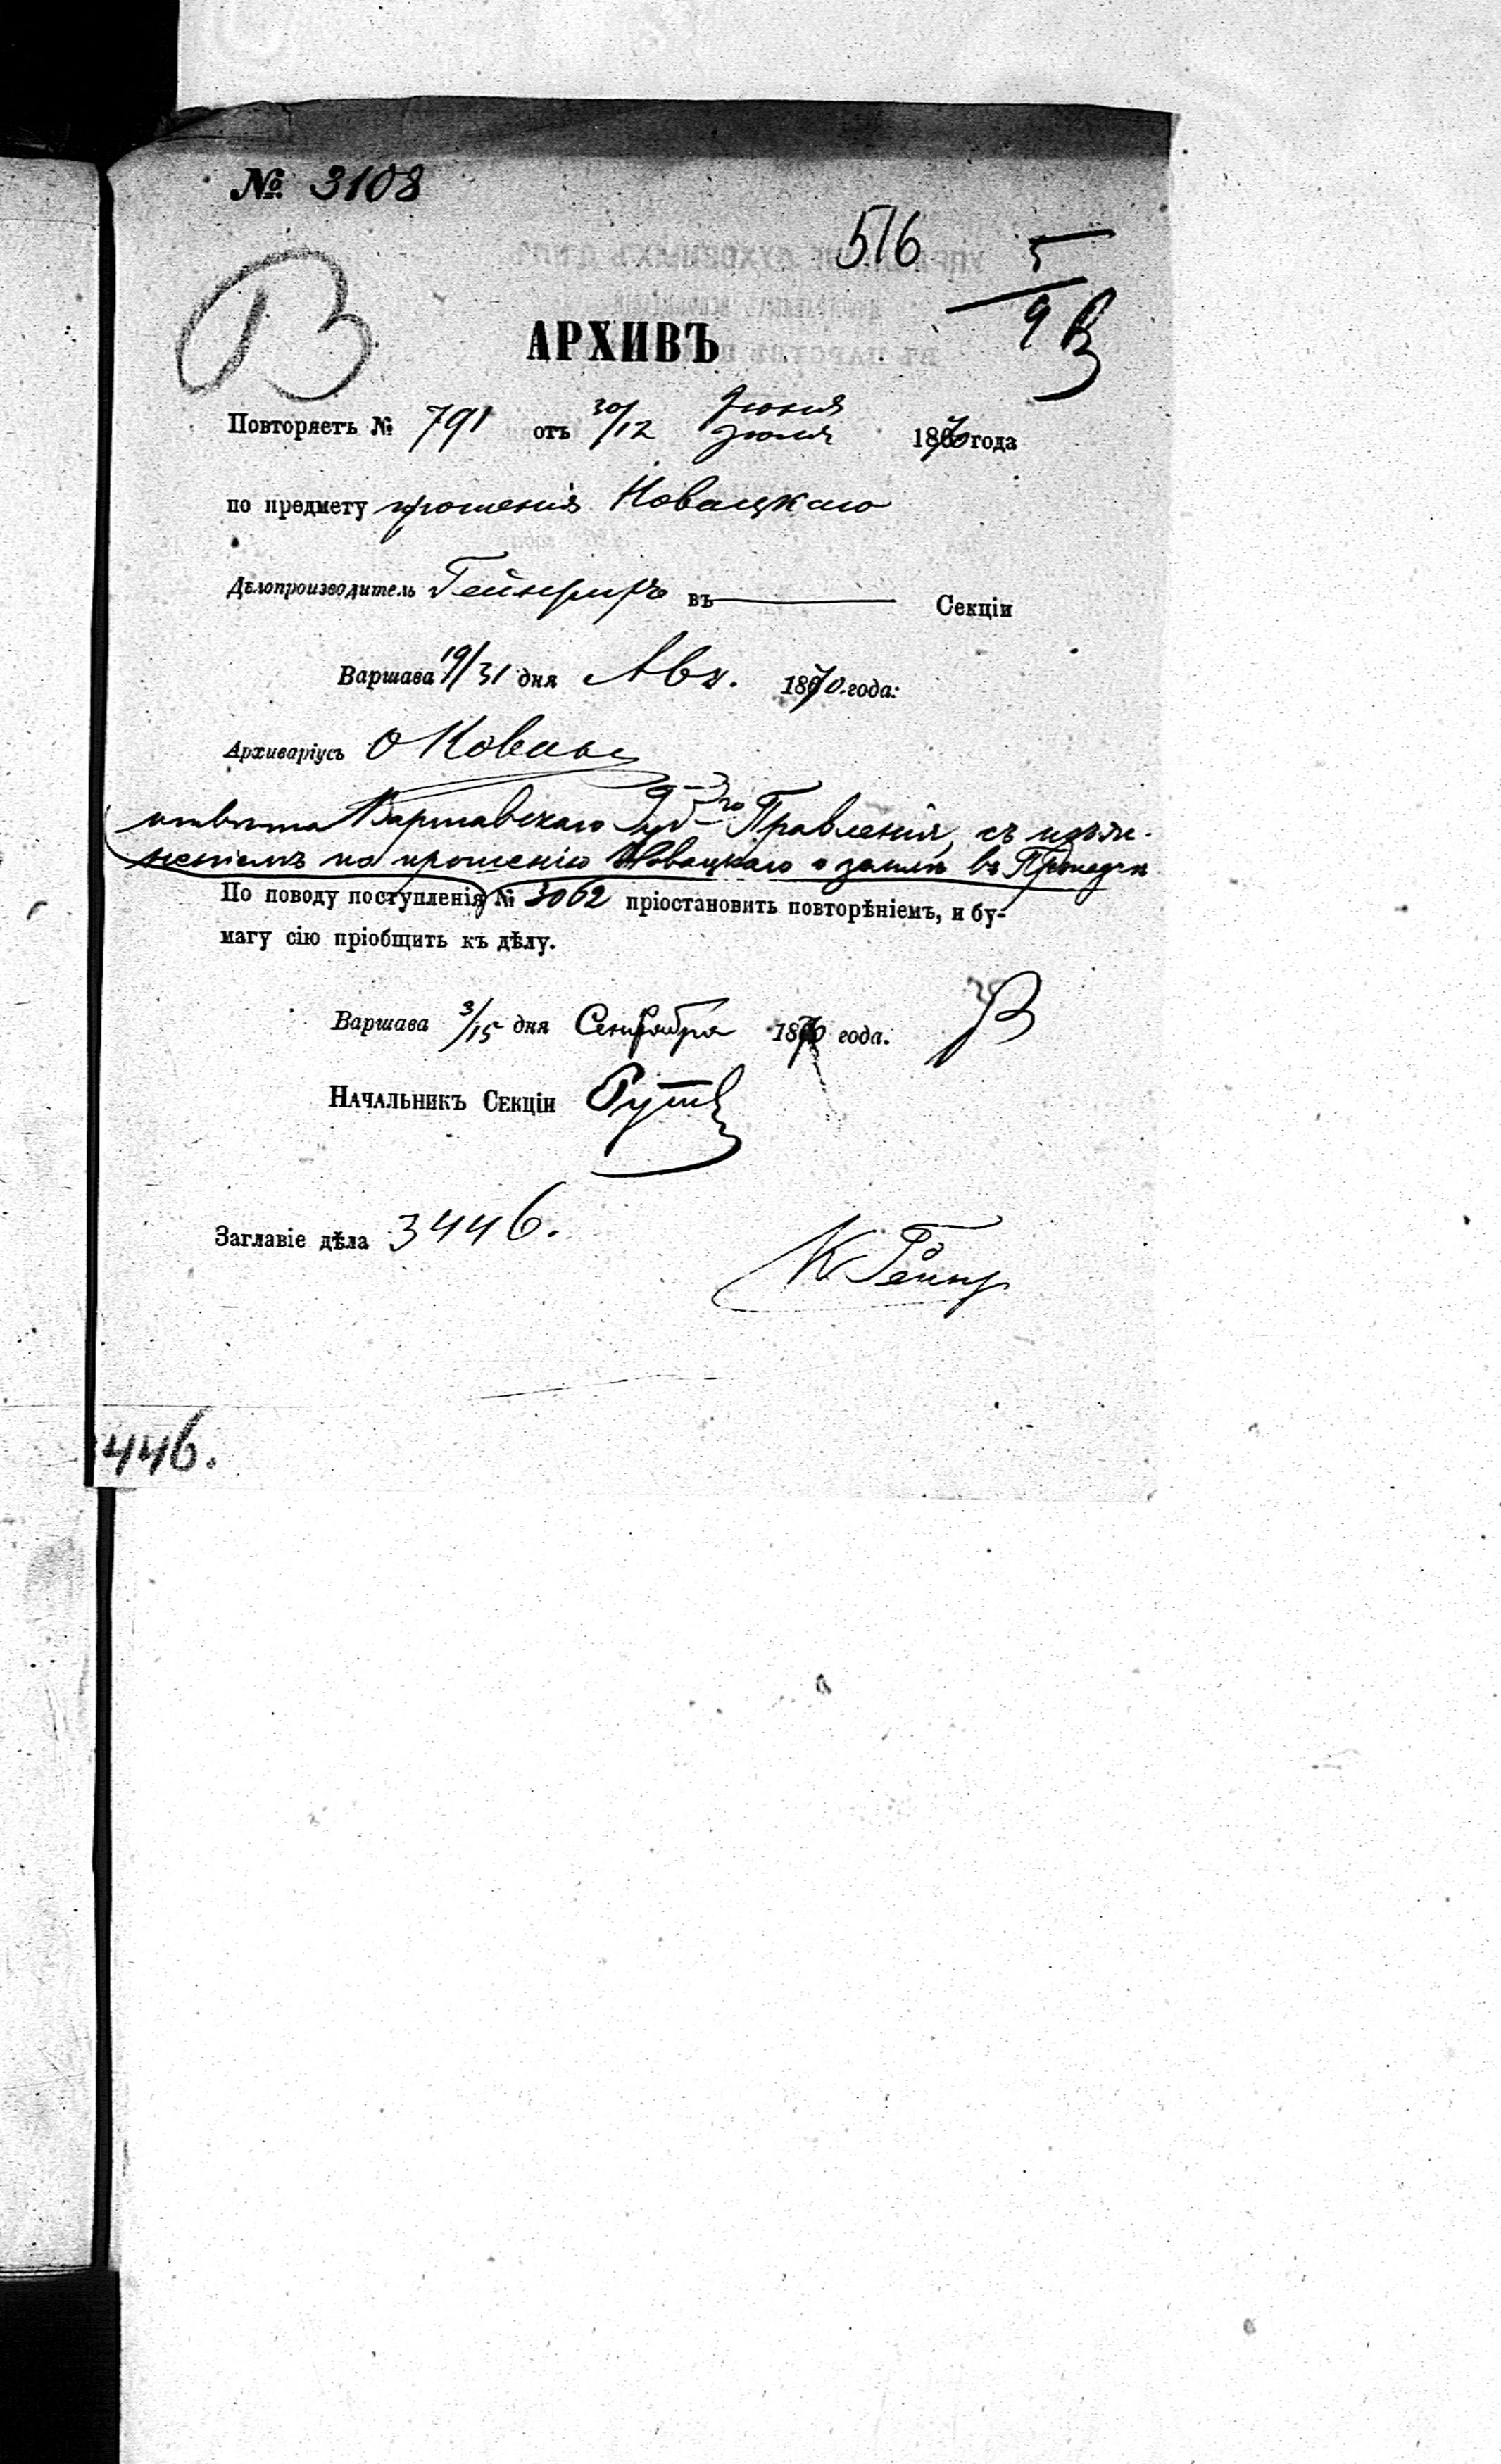 № 3108
516
5
9 В
В
АРХИВЪ
Повторяетъ № 791 отъ 30/12 Іюня Іюля 1870 года
по предмету прошенія Новацкаго
Дѣлопроизводитель Гейнрихъ въ Секціи
Варшава 19/31 дня Авг. 1870 года:
Архиваріусъ
отвѣта Варшавскаго Губ-го Правленія, съ изъяс-
неніемъ по прошенію Новацкаго о землѣ въ
По поводу поступленія № 3062 пріостановить повторѣніемъ, и бу-
магу сію пріобщить къ дѣлу.
Варшава 3/15 дня Сентября 1870 года.
В
Начальникъ Секціи
Заглавіе дѣла 3446.
К Гейнр
446.